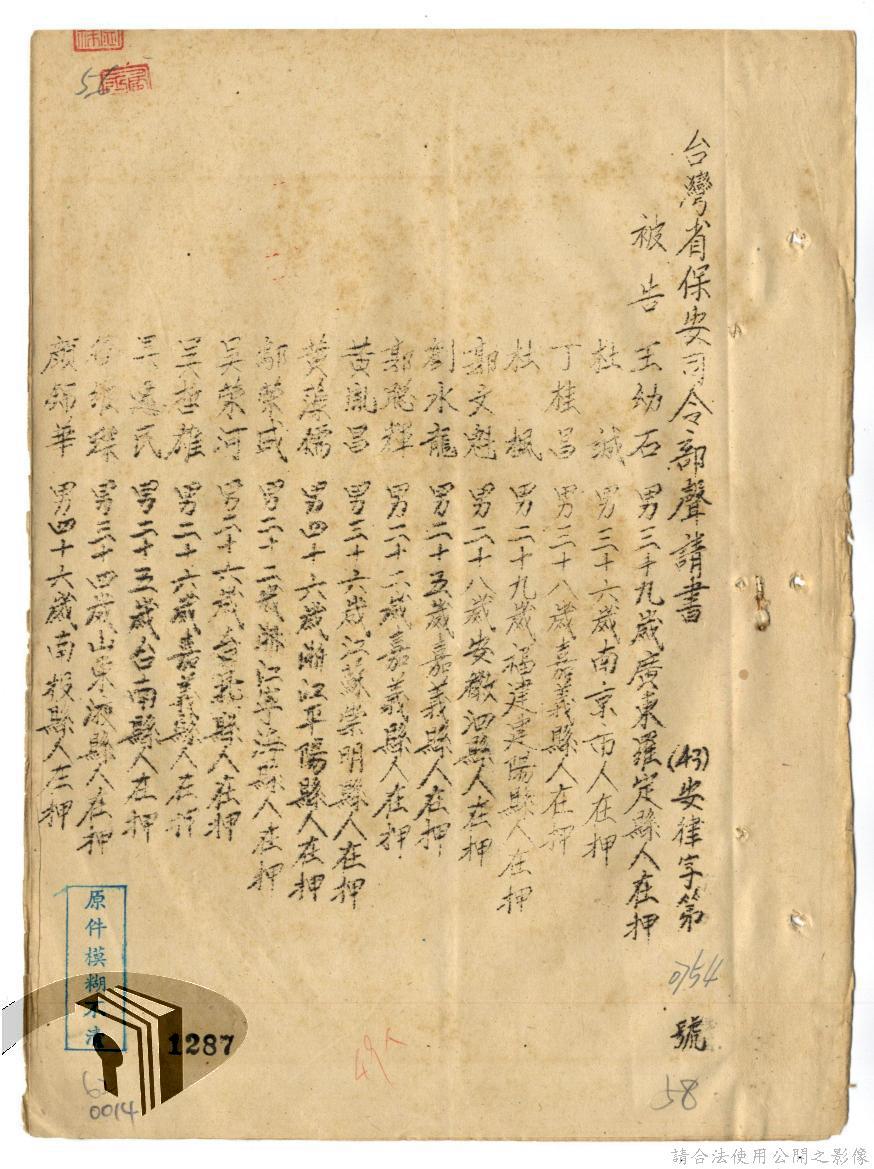 台灣省保安司令部聲請書 (43)安律字第0754號
被告 王幼石 男三十九歲廣東羅定縣人在押
杜誠 男三十六歲南京市人在押
丁桂昌 男三十八歲嘉義縣人在押
杜楓 男二十九歲福建建陽縣人在押
郭文魁 男二十八歲安徽泗縣人在押
劉水龍 男二十五歲嘉義縣人在押
郭聰輝 男二十二歲嘉義縣人在押
黃胤昌 男三十六歲江蘇崇明縣人在押
黃藻儒 男四十六歲浙江平陽縣人在押
鄔榮 男二十二歲浙江寧海縣人在押
吳榮河 男二十六歲台北縣人在押
吳哲雄 男二十六歲嘉義縣人在押
吳 民 男二十五歲台南縣人在押
男三十四歲山東 縣人在押
顏錦華 男四十六歲南投縣人在押
58
原件模糊不清
1287
0014
58
請合法使用公開之影像